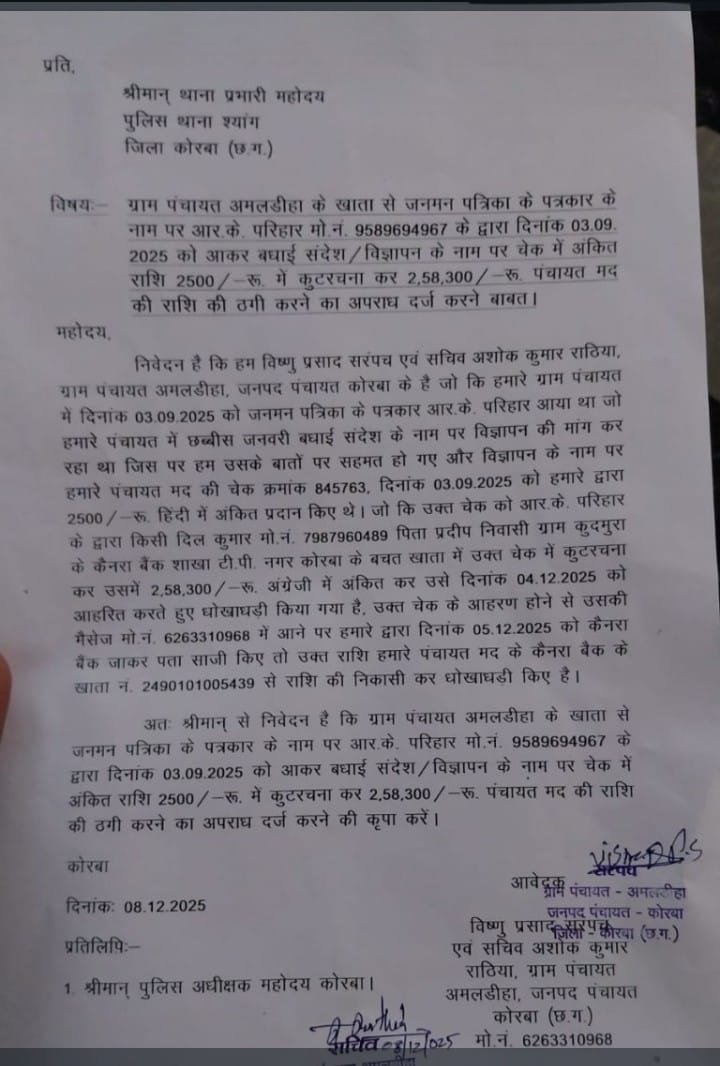 प्रति,
श्रीमान् थाना प्रभारी महोदय
पुलिस थाना श्यांग
जिला कोरबा (छ.ग.)
विषयः– ग्राम पंचायत अमलडीहा के खाता से जनमन पत्रिका के पत्रकार के
नाम पर आर.के. परिहार मो.नं. 9589694967 के द्वारा दिनांक 03.09.
2025 को आकर बधाई संदेश/विज्ञापन के नाम पर चेक में अंकित
राशि 2500/–रू. में कुटरचना कर 2,58,300/–रू. पंचायत मद
की राशि की ठगी करने का अपराध दर्ज करने बाबत।
महोदय,
निवेदन है कि हम विष्णु प्रसाद सरंपच एवं सचिव अशोक कुमार राठिया,
ग्राम पंचायत अमलडीहा, जनपद पंचायत कोरबा के है जो कि हमारे ग्राम पंचायत
में दिनांक 03.09.2025 को जनमन पत्रिका के पत्रकार आर.के. परिहार आया था जो
हमारे पंचायत में छब्बीस जनवरी बधाई संदेश के नाम पर विज्ञापन की मांग कर
रहा था जिस पर हम उसके बातों पर सहमत हो गए और विज्ञापन के नाम पर
हमारे पंचायत मद की चेक क्रमांक 845763, दिनांक 03.09.2025 को हमारे द्वारा
2500/–रू. हिंदी में अंकित प्रदान किए थे। जो कि उक्त चेक को आर.के. परिहार
के द्वारा किसी दिल कुमार मो.नं. 7987960489 पिता प्रदीप निवासी ग्राम कुदमुरा
के कैनरा बैंक शाखा टी.पी. नगर कोरबा के बचत खाता में उक्त चेक में कुटरचना
कर उसमें 2,58,300/–रू. अंग्रेजी में अंकित कर उसे दिनांक 04.12.2025 को
आहरित करते हुए धोखाघड़ी किया गया है, उक्त चेक के आहरण होने से उसकी
मैसेज मो.नं. 6263310968 में आने पर हमारे द्वारा दिनांक 05.12.2025 को कैनरा
बैंक जाकर पता साजी किए तो उक्त राशि हमारे पंचायत मद के कैनरा बैंक के
खाता नं. 2490101005439 से राशि की निकासी कर धोखाघड़ी किए है।
अतः श्रीमान् से निवेदन है कि ग्राम पंचायत अमलडीहा के खाता से
जनमन पत्रिका के पत्रकार के नाम पर आर.के. परिहार मो.नं. 9589694967 के
द्वारा दिनांक 03.09.2025 को आकर बधाई संदेश/विज्ञापन के नाम पर चेक में
अंकित राशि 2500/–रू. में कुटरचना कर 2,58,300/–रू. पंचायत मद की राशि
की ठगी करने का अपराध दर्ज करने की कृपा करें।
कोरबा
दिनांकः 08.12.2025
प्रतिलिपिः–
1. श्रीमान् पुलिस अधीक्षक महोदय कोरबा।
आवेदक
सरपंच
ग्राम पंचायत - अमलडीहा
जनपद पंचायत - कोरबा
जिला - कोरबा (छ.ग.)
विष्णु प्रसाद सरपंच
एवं सचिव अशोक कुमार
राठिया, ग्राम पंचायत
अमलडीहा, जनपद पंचायत
कोरबा (छ.ग.)
मो.नं. 6263310968
सचिव 08/12/2025